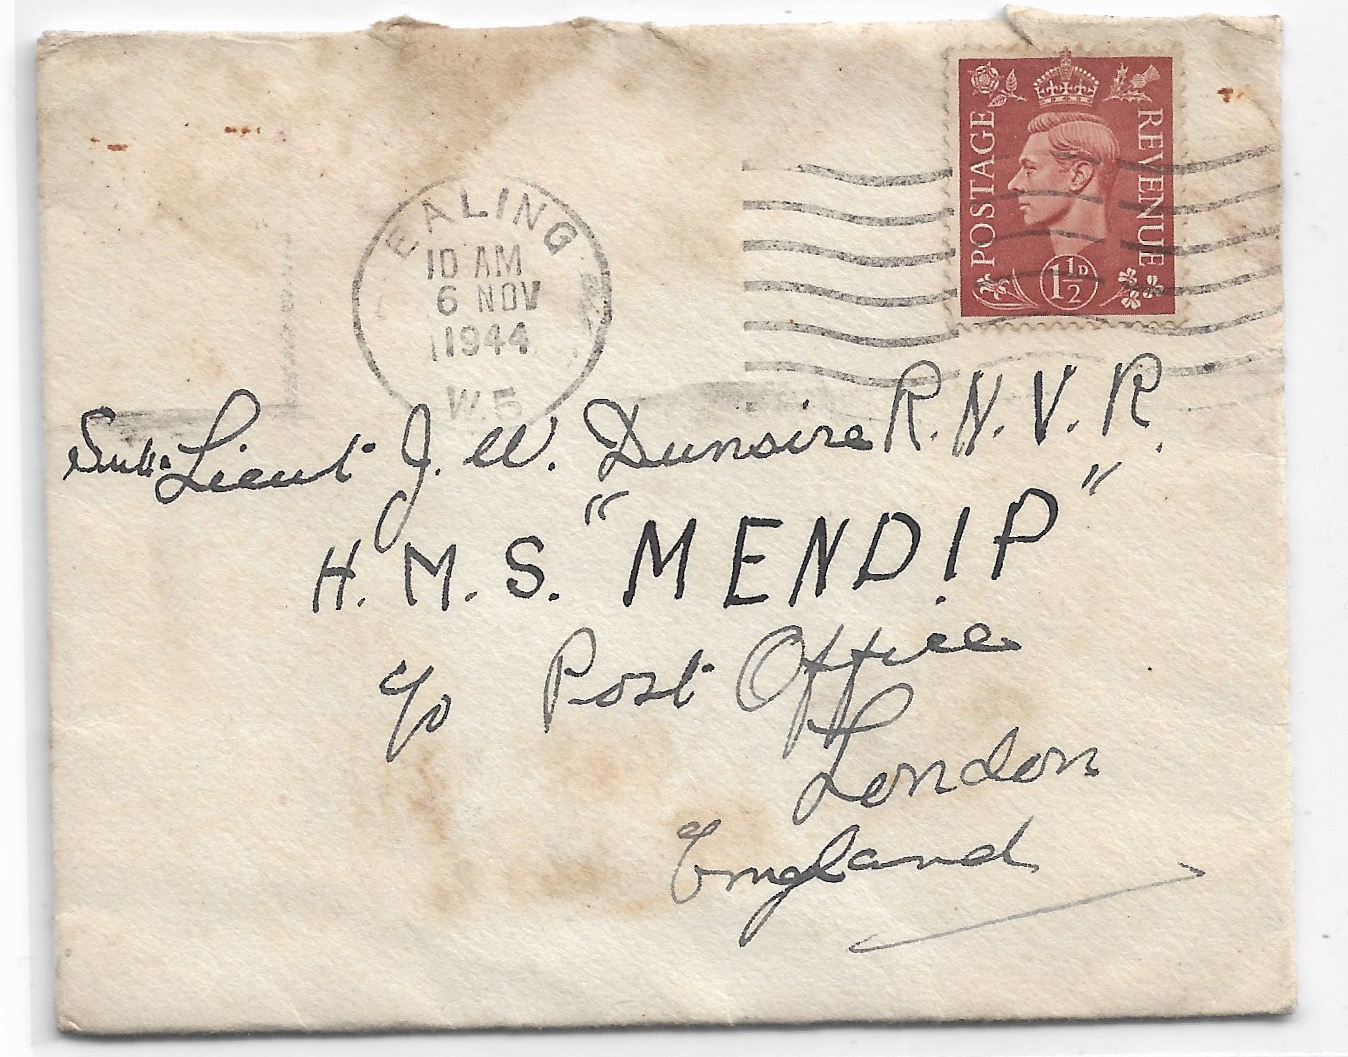 POSTAGE REVENUE
1½D
EALING
10 AM
6 NOV
1944
W.5
Sub. Lieut J. W. Dunsire R.N.V.R.
H.M.S. "MENDIP"
c/o Post Office
London
England